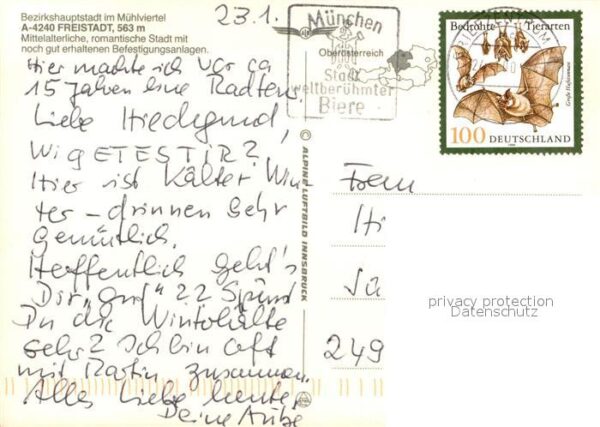 23.1.
Bezirkshauptstadt im Mühlviertel
A-4240 FREISTADT, 563 m
Mittelalterliche, romantische Stadt mit
noch gut erhaltenen Befestigungsanlagen.
Hier machte ich vor ca
15 Jahren eine Radtour.
Liebe Hiedegund,
WIGETESTIR?
Hier ist kalter Win-
ter – drinnen sehr
gemütlich.
Hoffentlich geht's
Dir "gut" z.Z.
Du die Winterkälte
sehr? Ich bin oft
mit zusammen.
Alles Liebe heute,
Deine
München
Stadt
weltberühmter
Biere
Oberösterreich
Bedrohte Tierarten
Große Hufeisennase
100 DEUTSCHLAND
© ALPINE LUFTBILD INNSBRUCK
Frau
Hi
249
privacy protection
Datenschutz